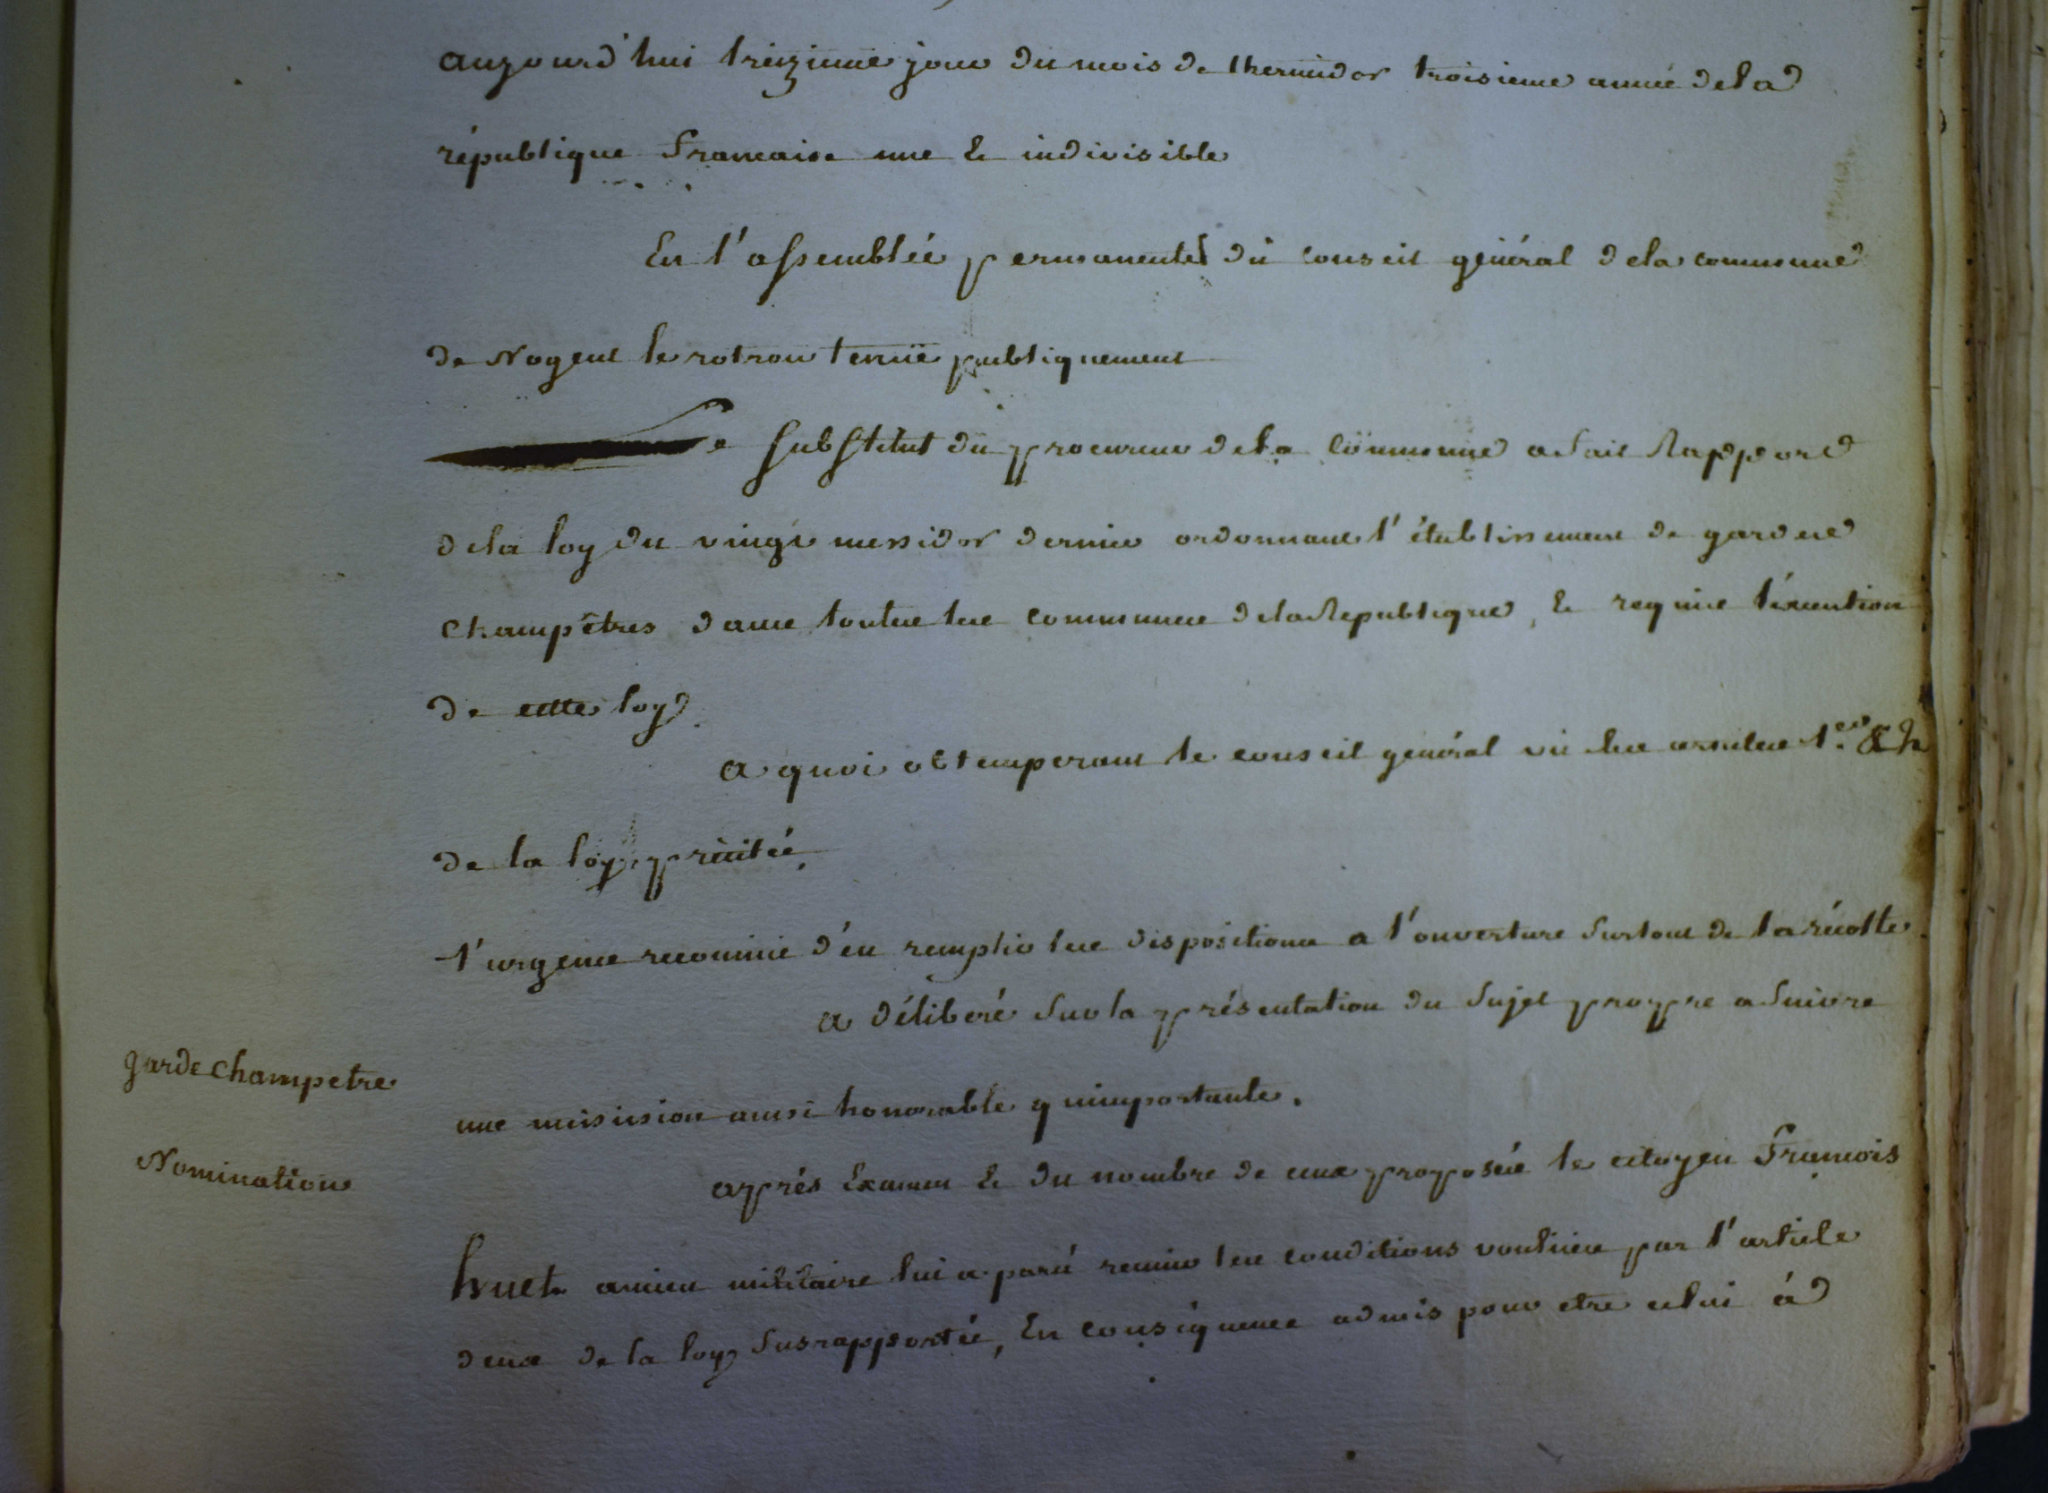 aujourd'hui treizieme jour du mois de thermidor troisieme année de la
république francaise une & indivisible
En l'assemblée permanente du conseil général de la commune
de Nogent le rotrou tenüe publiquement
Le substitut du procureur de la commune a fait Rapport
de la loy du vingt messidor dernier ordonnant l'établissement de gardes
champêtres dans toutes les communes de la Republique, & requis l'éxecution
de cette loy
a quoi obtemperant le conseil général vü les articles 1.er & 2
de la loy précitée,
l'urgence reconnüe d'en remplir les dispositions a l'ouverture surtout de la récolte
a délibéré sur la présentation du sujet propre a suivre
garde champetre
une mission aussi honorable qu'importante.
Nomination
aprés Examen & du nombre de ceux proposés le citoyen François
huet ancien militaire lui a parû reunir les conditions voulües par l'article
deux de la loy susrapportée, En conséquence admis pour etre celui á